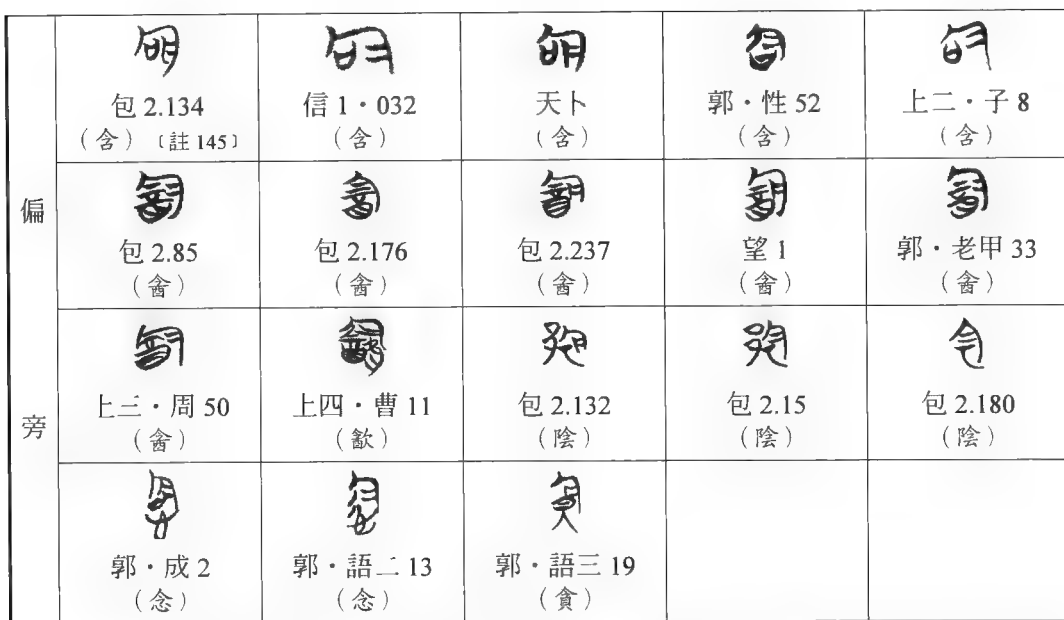 偏旁
包 2.134
（含）〔註 145〕
信 1・032
（含）
天卜
（含）
郭・性 52
（含）
上二・子 8
（含）
包 2.85
（酓）
包 2.176
（酓）
包 2.237
（酓）
望 1
（酓）
郭・老甲 33
（酓）
上三・周 50
（酓）
上四・曹 11
（歙）
包 2.132
（陰）
包 2.15
（陰）
包 2.180
（陰）
郭・成 2
（念）
郭・語二 13
（念）
郭・語三 19
（貪）